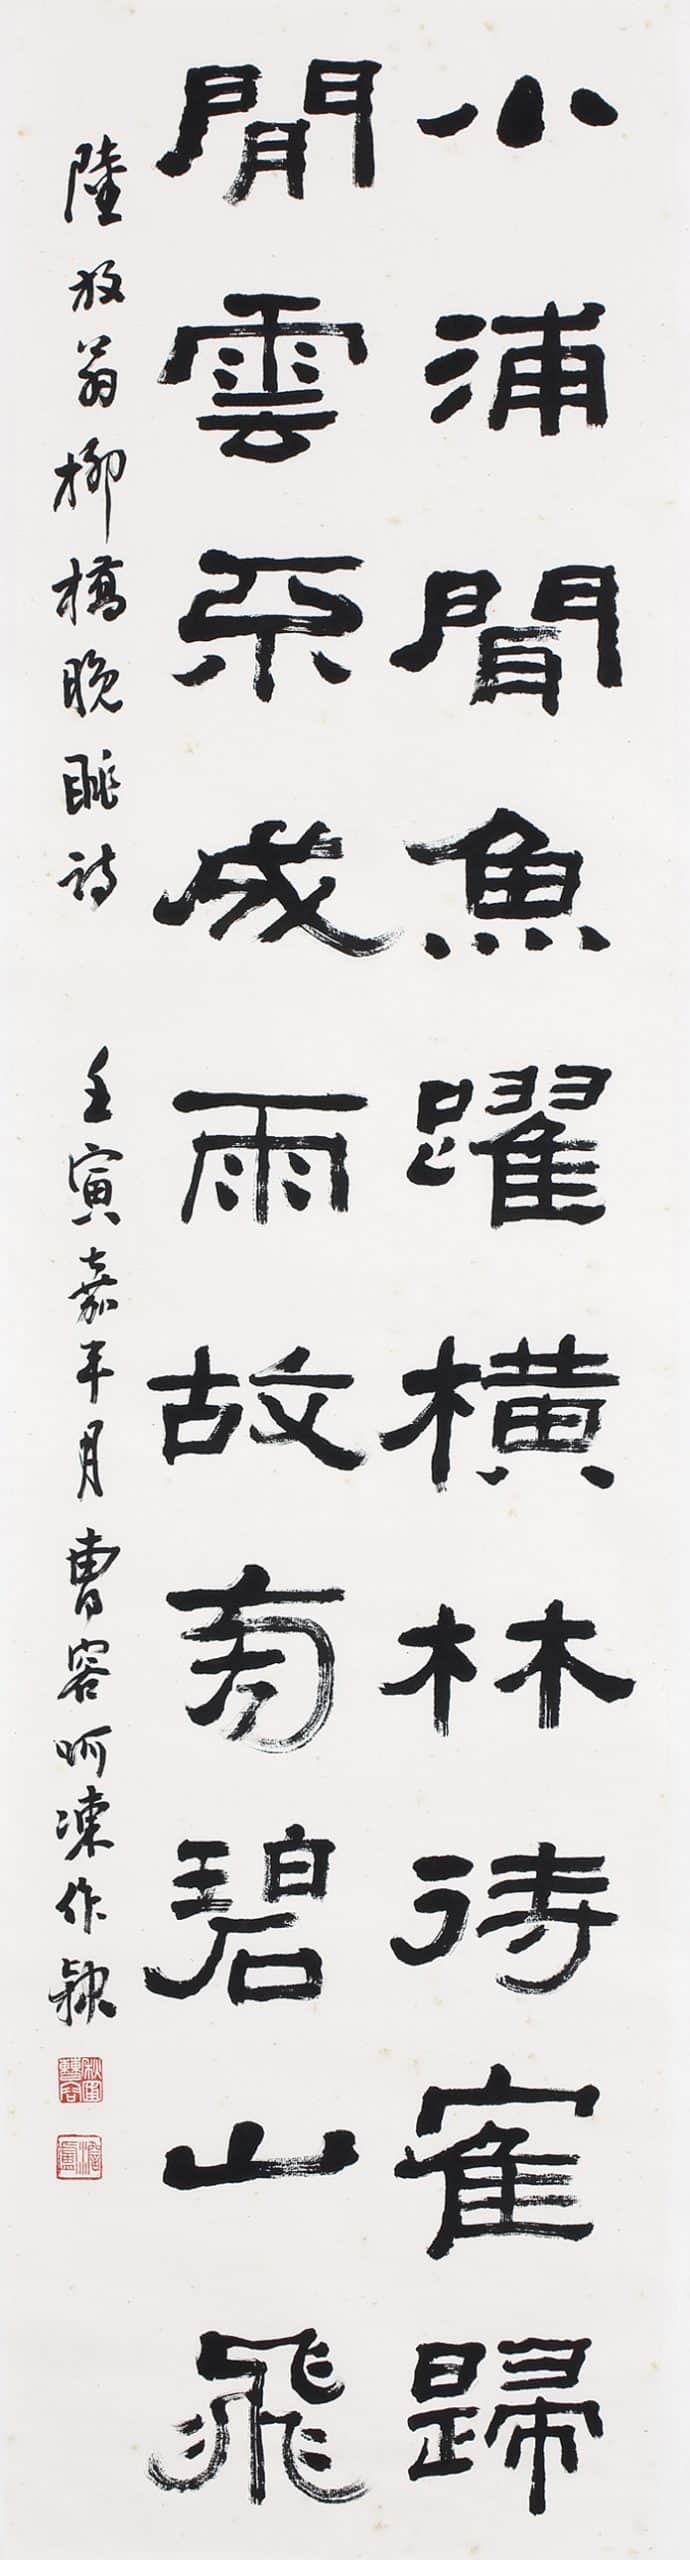 小浦聞魚躍橫林待寉歸
閒雲不成雨故旁碧山飛
陸放翁柳橋晚眺詩 壬寅嘉平月曹容呵凍作隸
秋圃曹容
澹廬